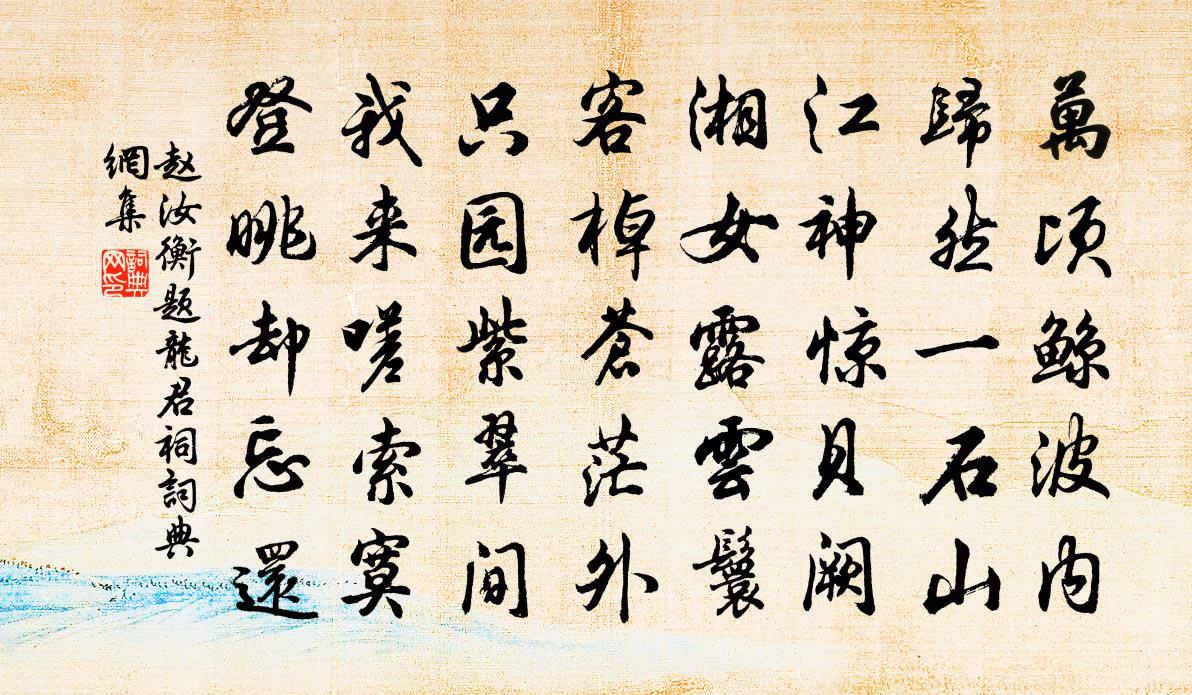 萬顷鲸波内
歸然一石山
江神惊贝阙
湘女露雲鬟
客棹蒼茫外
只园紫翠间
我来嗟索寞
登眺却忘還
赵汝衡题龍君祠詞典
網集
詞典
网印